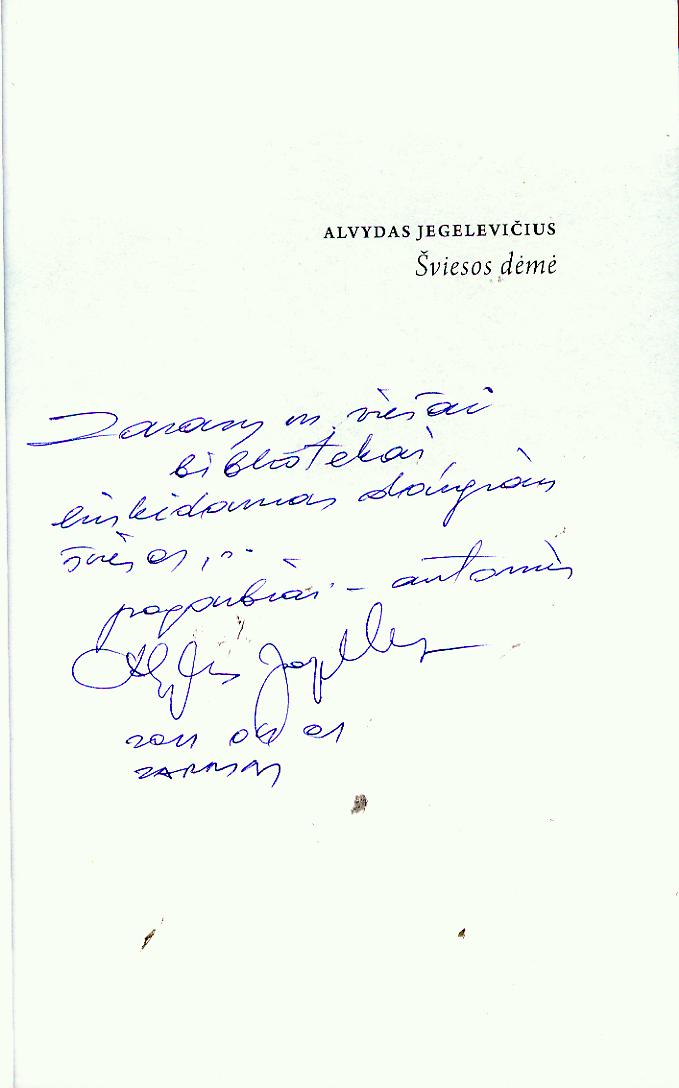 ALVYDAS JEGELEVIČIUS
Šviesos dėmė
Zarasų viešai
bibliotekai,
linkėdamas daugiau
šviesos...
pagarbiai – autorius
2011 04 01
ZARASAI